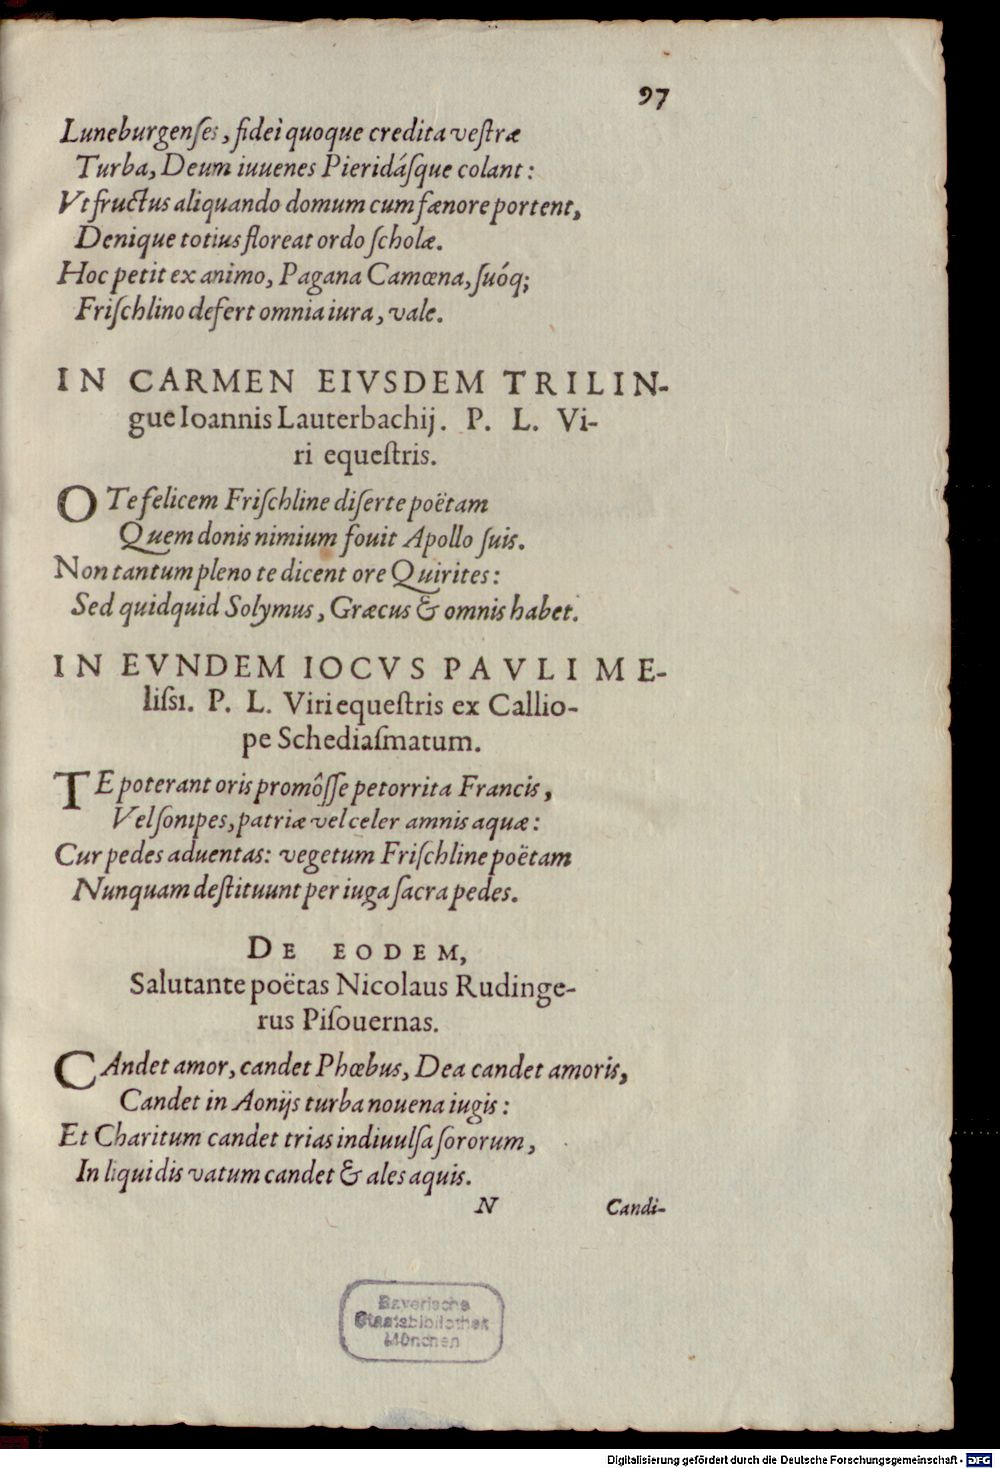 97
Luneburgenſes, fidei quoque credita veſtræ
Turba, Deum iuuenes Pieridáſque colant:
Vt fructus aliquando domum cum fænore portent,
Denique totius floreat ordo ſcholæ.
Hoc petit ex animo, Pagana Camœna, ſuóq;
Friſchlino defert omnia iura, vale.
IN CARMEN EIVSDEM TRILIN-
gue Ioannis Lauterbachij. P. L. Vi-
ri equeſtris.
O Te felicem Friſchline diſerte poëtam
Quem donis nimium fouit Apollo ſuis.
Non tantum pleno te dicent ore Quirites:
Sed quidquid Solymus, Græcus & omnis habet.
IN EVNDEM IOCVS PAVLI ME-
liſsi. P. L. Viri equeſtris ex Callio-
pe Schediaſmatum.
TE poterant oris promôſſe petorrita Francis,
Vel ſonipes, patriæ vel celer amnis aquæ:
Cur pedes aduentas: vegetum Friſchline poëtam
Nunquam deſtituunt per iuga ſacra pedes.
DE EODEM,
Salutante poëtas Nicolaus Rudinge-
rus Piſouernas.
CAndet amor, candet Phœbus, Dea candet amoris,
Candet in Aonijs turba nouena iugis:
Et Charitum candet trias indiuulſa ſororum,
In liquidis vatum candet & ales aquis.
N Candi-
Bayerische
Staatsbibliothek
München
Digitalisierung gefördert durch die Deutsche Forschungsgemeinschaft - DFG